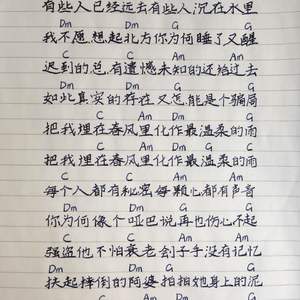 有些人已经远去有些人沉在水里
Dm G Dm G
我不愿想起北方你为何睡了又醒
C Am C Am
迟到的总有遗憾未知的还给过去
Dm G Dm G
如此真实的存在又怎能是个骗局
C Am Dm G
把我埋在春风里化作最温柔的雨
C Am Dm G C
把我埋在春风里化作最温柔的雨
C Am C Am
每个人都有秘密每颗心都有声音
Dm G Dm G
你为何像个哑巴说再也伤心不起
C Am C Am
强盗他不怕衰老刽子手没有记忆
Dm G Dm G
扶起摔倒的阿婆拍拍她身上的泥
C Am Dm G